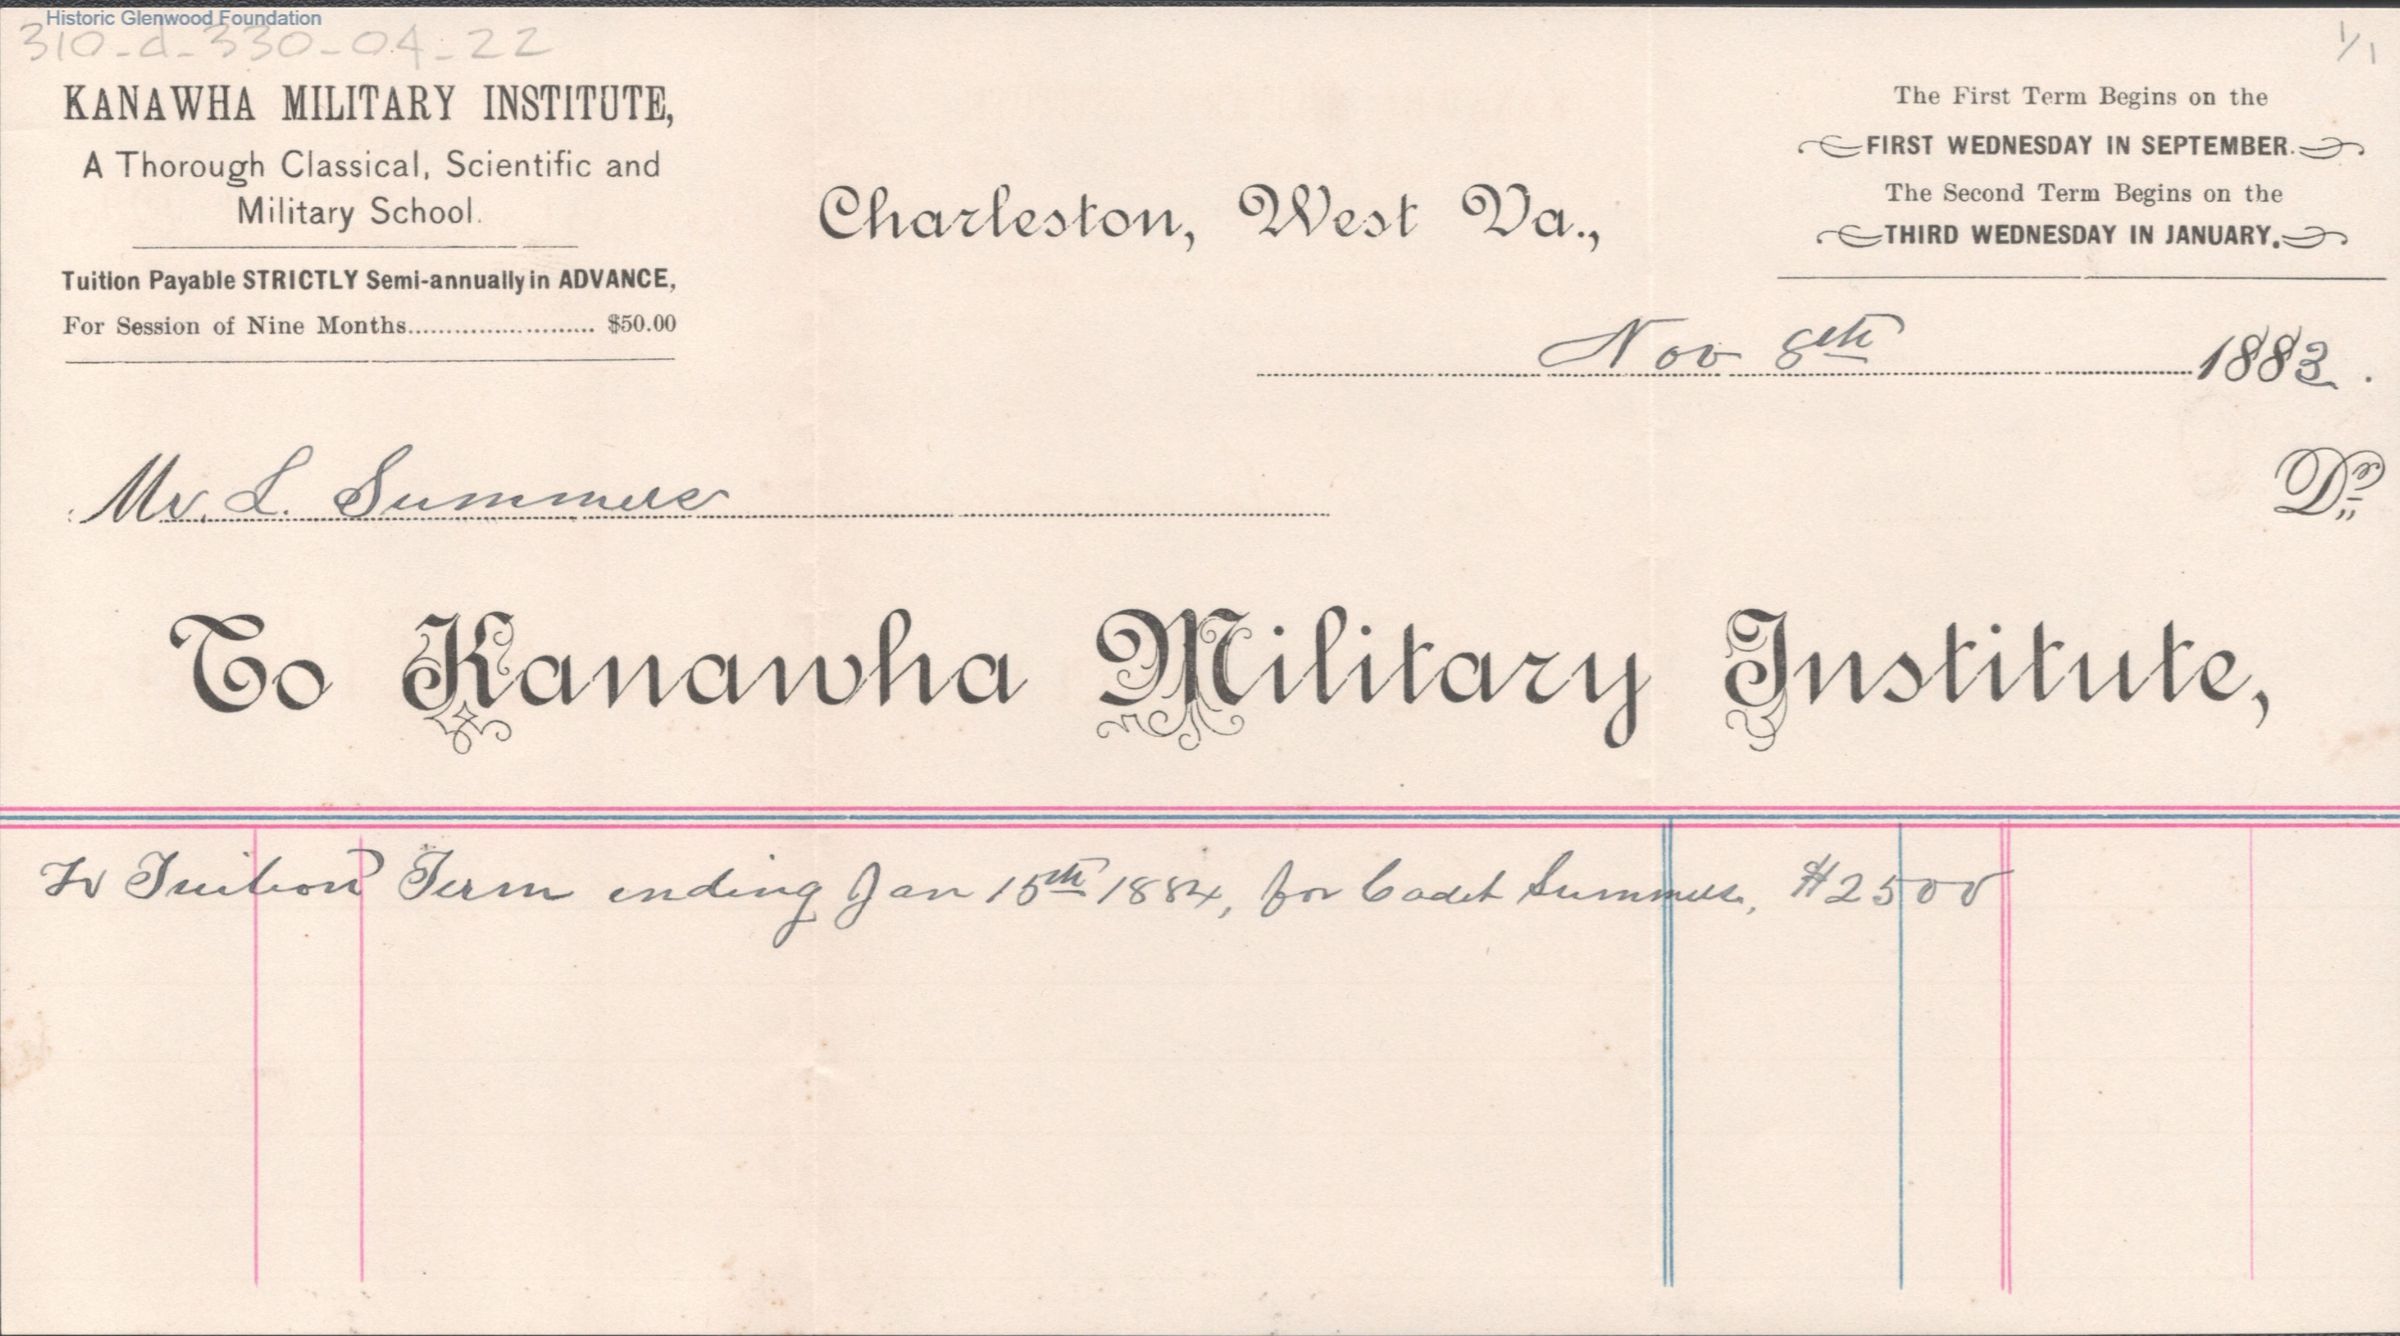 Historic Glenwood Foundation
310-d-330-04-22
1/1
KANAWHA MILITARY INSTITUTE,
A Thorough Classical, Scientific and
Military School.
Tuition Payable STRICTLY Semi-annually in ADVANCE,
For Session of Nine Months........................ $50.00
The First Term Begins on the
FIRST WEDNESDAY IN SEPTEMBER.
The Second Term Begins on the
THIRD WEDNESDAY IN JANUARY.
Charleston, West Va.,
Nov 8th 1883.
Mr. L. Summers
Dr.
To Kanawha Military Institute,
To Tuition Term ending Jan 15th 1884, for Cadet Summers, $25 00